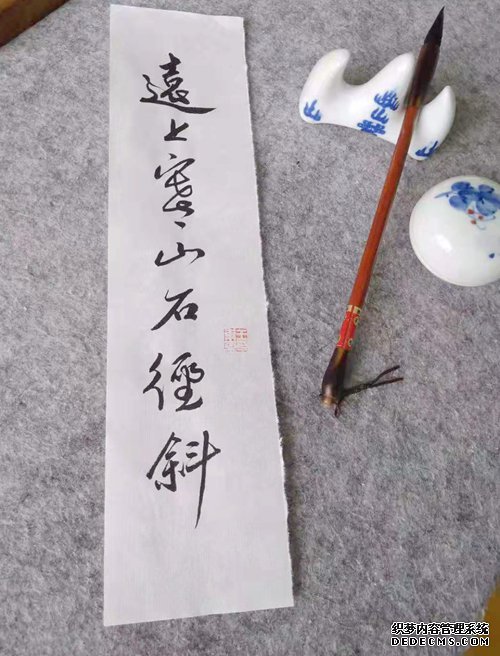 遠上寒山石徑斜
织梦内容管理系统
DEDECMS.COM